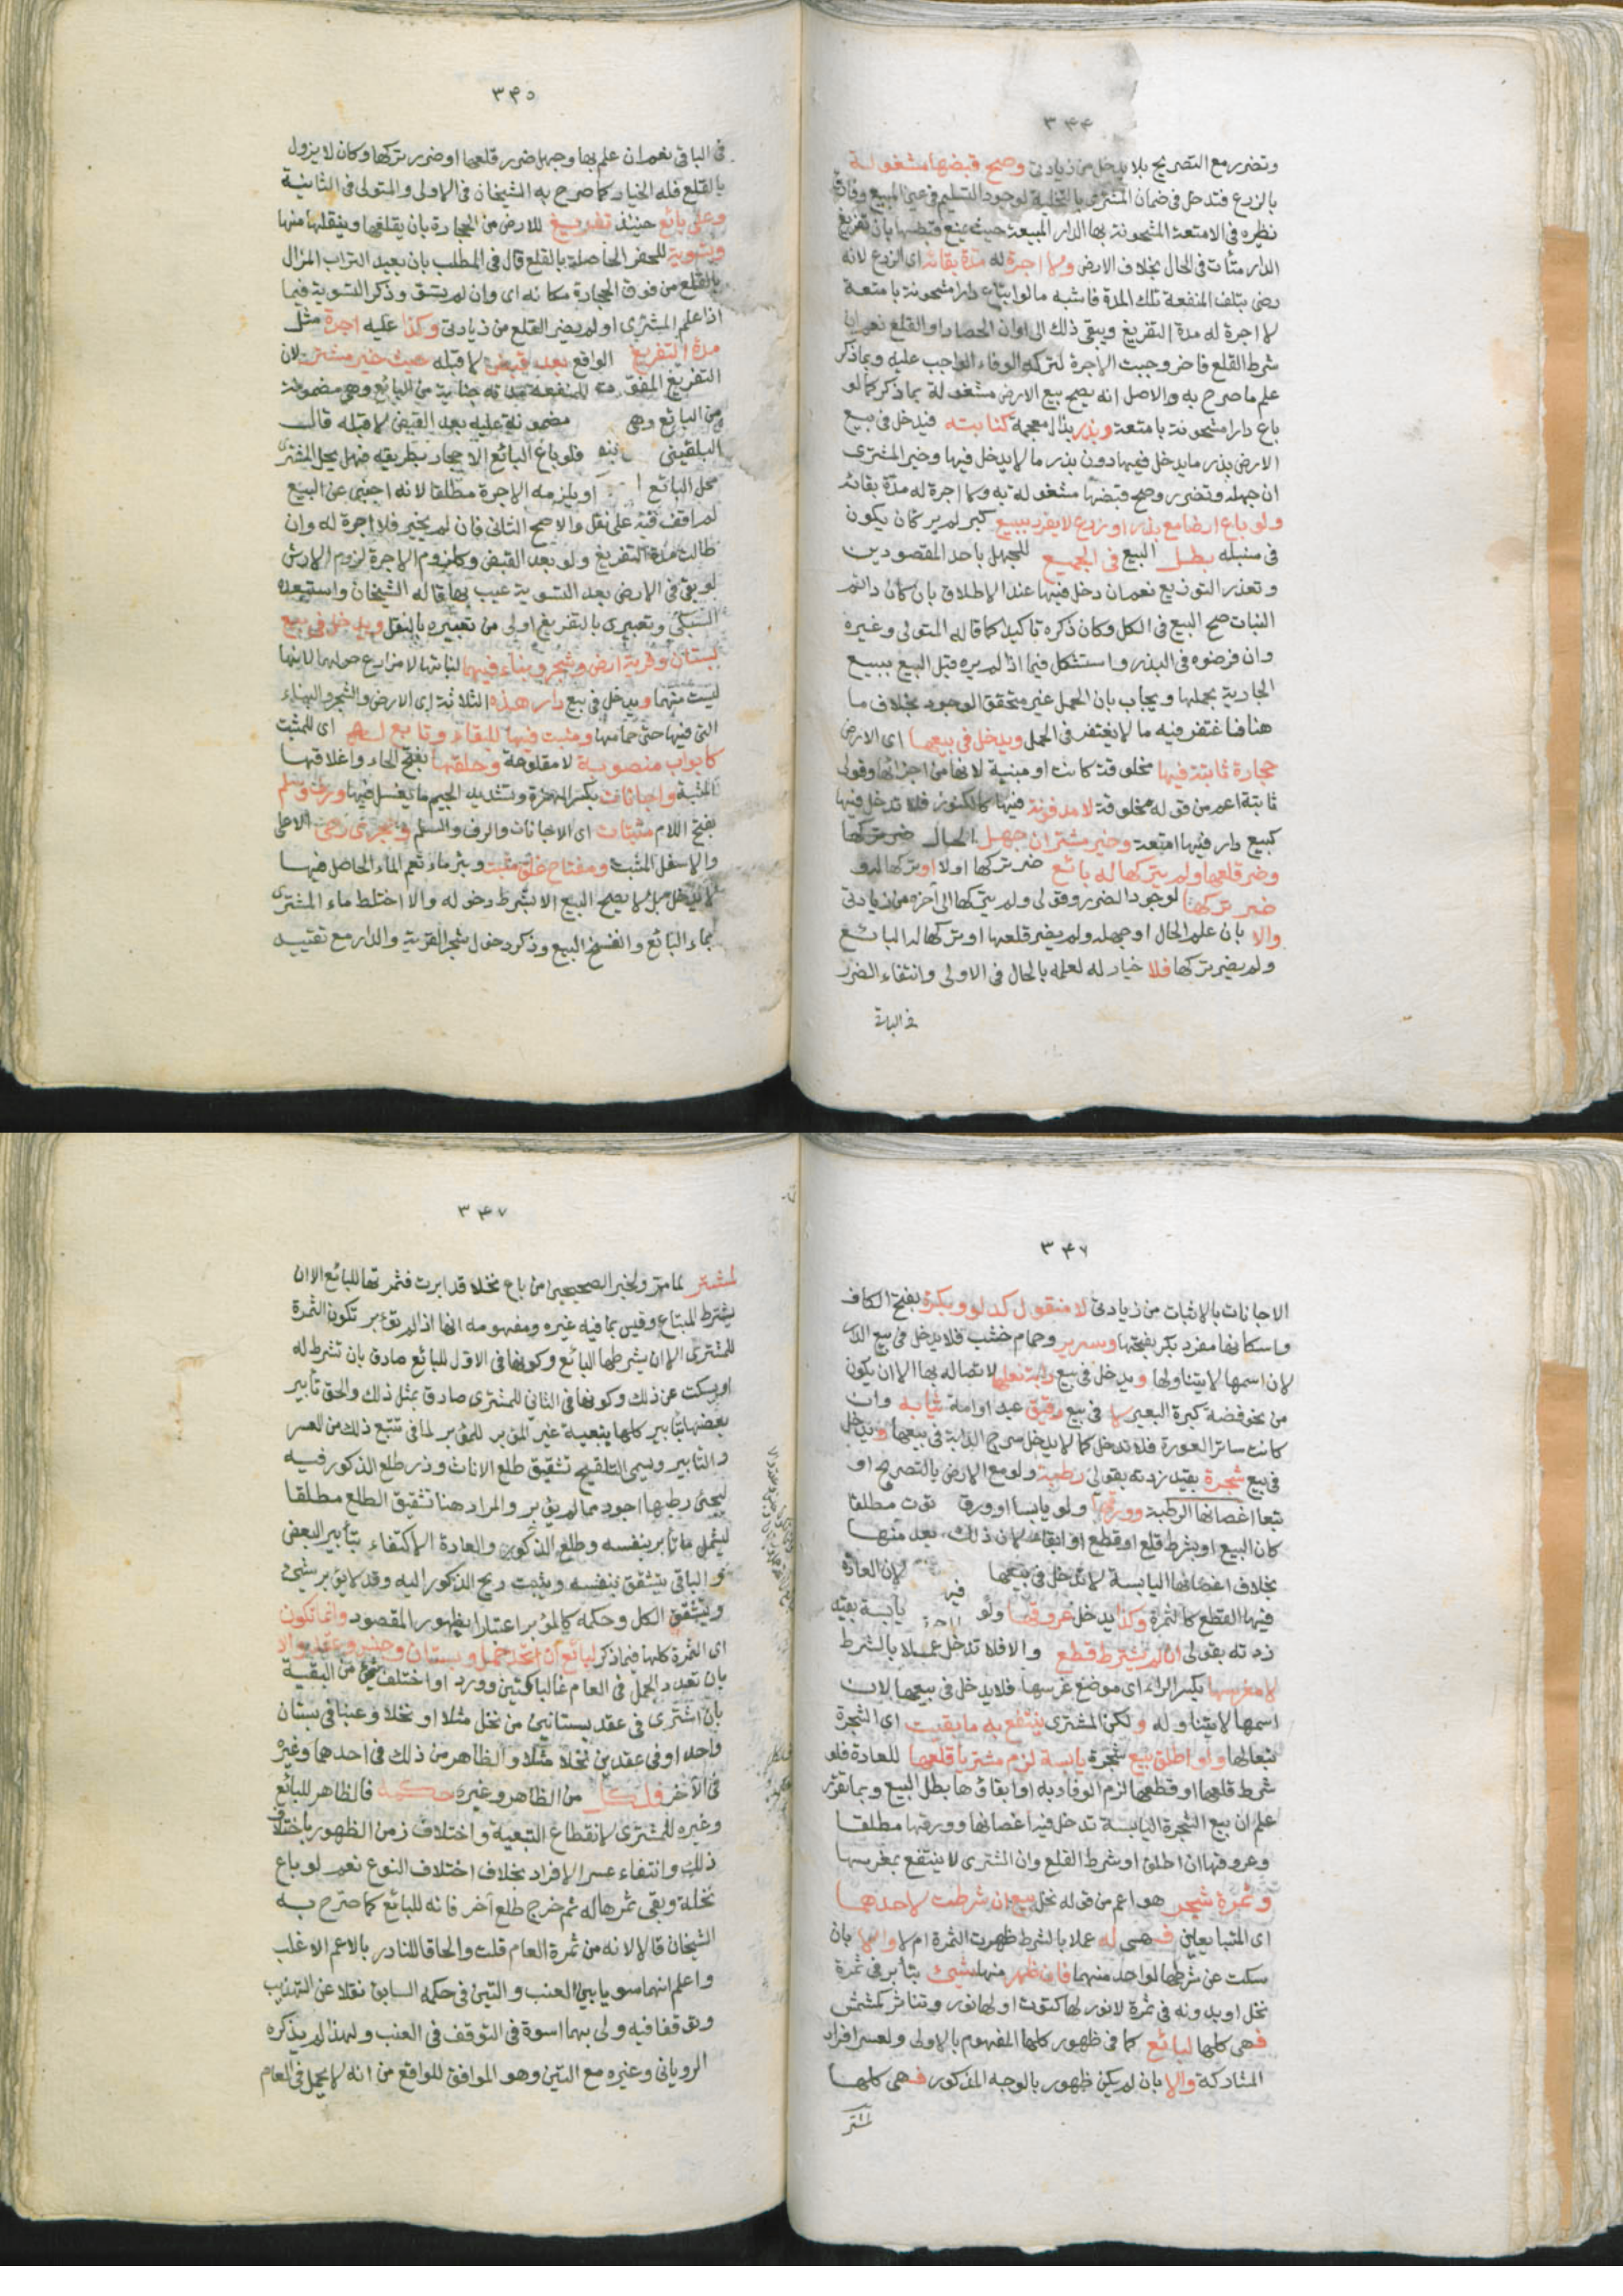 ٣٤٤
وتضرر مع التصريح بلا يدخل من زيادتى وصح قبضها مشغولة
بالزرع فتدخل فى ضمان المشترى بالتخلية لوجود التسليم فى عين المبيع وفارق
نظيره فى الامتعة المشحونة بها الدار المبيعة حيث يمنع قبضها بان تفريغ
الدار متأت فى الحال بخلاف الارض ولا اجرة له مدة بقائه اى الزرع لانه
رضى بتلف المنفعة تلك المدة فاشبه ما لو ابتاع دارا مشحونة بامتعة
لا اجرة له مدة التفريغ ويبقى ذلك الى اوان الحصاد او القلع نعم ان
شرط القلع فاخر وجبت الاجرة لتركه الوفاء الواجب عليه وبما ذكر
علم ما صرح به والاصل انه يصح بيع الارض مشغولة بما ذكر كما لو
باع دارا مشحونة بامتعة وبذر بذال معجمة كنابته فيدخل فى بيع
الارض بذر ما يدخل فيها دون بذر ما لا يدخل فيها وخير المشترى
ان جهله وتضرر وصح قبضها مشغولة به ولا اجرة له مدة بقائه
ولو باع ارضا مع بذر او زرع لا يفرد ببيع كبر لم ير كان يكون
فى سنبله بطل البيع فى الجميع للجهل باحد المقصودين
وتعذر التوزيع نعم ان دخل فيها عند الاطلاق بان كان دائم
النبات صح البيع فى الكل وكان ذكره تاكيدا كما قاله المتولى وغيره
وان فرضوه فى البذر واستشكل فيما اذا لم يره قبل البيع ببيع
الجارية بحملها ويجاب بان الحمل غير متحقق الوجود بخلاف ما
هنا فاغتفر فيه ما لا يغتفر فى الحمل ويدخل فى بيعها اى الارض
حجارة ثابتة فيها مخلوقة كانت او مبنية لانها من اجزائها وقولى
ثابتة اعم من قوله مخلوقة لا مدفونة فيها كالكنوز فلا تدخل فيها
كبيع دار فيها امتعة وخير مشتر ان جهل الحال ضر تركها
وضر قلعها ولم يتركها له بائع ضر تركها اولا او تركها له و
ضر تركها لوجود الضرر وقولى ولم يتركها الى آخره من زيادتى
والا بان علم الحال او جهله ولم يضر قلعها او تركها له البائع
ولم يضر تركها فلا خيار له لعلمه بالحال فى الاولى وانتفاء الضرر
فى الباقى
٣٤٥
فى الباقى نعم ان علم بها وجهل ضرر قلعها او ضرر تركها وكان لا يزول
بالقلع فله الخيار كما صرح به الشيخان فى الاولى والمتولى فى الثانية
وعلى بائع حينئذ تفريغ للارض من الحجارة بان يقلعها وينقلها منها
وتسوية للحفر الحاصلة بالقلع قال فى المطلب بان يعيد التراب المزال
بالقلع من فوق الحجارة مكانه اى وان لم يستو وذكر التسوية فيما
اذا علم المشترى او لم يضر القلع من زيادتى وكذا عليه اجرة مثل
مدة التفريغ الواقع بعد قبض لا قبله حيث خير مشتر لان
التفريغ المفوت للمنفعة مدته جناية من البائع وهى مضمونة
من البائع وهى مضمونة عليه بعد القبض لا قبله قال
البلقينى فلو باع البائع الاحجار بطريقه فهل يحل المشترى
محل البائع او يلزمه الاجرة مطلقا لانه اجنبى عن البيع
لم اقف فيه على نقل والاصح الثانى فان لم يخير فلا اجرة له وان
طالت مدة التفريغ ولو بعد القبض وكلزوم الاجرة لزوم الارش
لو بقى فى الارض بعد التسوية عيب بها قاله الشيخان واستبعده
السبكى وتعبيرى بالتفريغ اولى من تعبيره بالنقل ويدخل فى بيع
بستان وقرية ارض وشجر وبناء فيهما لثباتها لا مزارع حولهما لانها
ليست منهما ويدخل فى بيع دار هذه الثلاثة اى الارض والشجر والبناء
التى فيها حتى حمامها ومثبت فيها للبقاء وتابع له اى للمثبت
كابواب منصوبة لا مقلوعة وحلقها بفتح الحاء واغلاقها
المثبتة واجانات بكسر الهمزة وتشديد الجيم ما يغسل فيها ورف وسلم
بفتح اللام مثبتات اى الاجانات والرف والسلم وحجرى رحى الاعلى
والاسفل المثبت ومفتاح غلق مثبت وبئر ماء نعم الماء الحاصل فيها
لا يدخل بل لا يصح البيع الا بشرط دخوله والا اختلط ماء المشترى
بماء البائع وانفسخ البيع وذكر دخول شجر القرية والدار مع تقييد
٣٤٧
الاجانات بالاثبات من زيادتى لا منقول كدلو وبكرة بفتح الكاف
واسكانها مفرد بكر بفتحها وسرير وحمام خشب فلا يدخل فى بيع الدار
لان اسمها لا يتناولها ويدخل فى بيع دابة نعلها لاتصاله بها الا ان يكون
من نحو فضة كبرة البعير لا فى بيع رقيق عبد او امة ثيابه وان
كانت ساتر العورة فلا تدخل كما لا يدخل سرج الدابة فى بيعها ويدخل
فى بيع شجرة بقيد زدته بقولى رطبة ولو مع الارض بالتصريح او
تبعا اغصانها الرطبة وورقها ولو يابسا او ورق توت مطلقا
كان البيع او بشرط قلع او قطع او ابقاء لان ذلك يعد منها
بخلاف اغصانها اليابسة لا تدخل فى بيعها لان العادة
فيها القطع كالثمرة وكذا يدخل عروقها ولو يابسة بقيد
زدته بقولى ان لم يشترط قطع والا فلا تدخل عملا بالشرط
لا مغرسها بكسر الراء اى موضع غرسها فلا يدخل فى بيعها لان
اسمها لا يتناوله ولكن المشترى ينتفع به ما بقيت اى الشجرة
تبعا لها ولو اطلق بيع شجرة يابسة لزم مشتريا قلعها للعادة فلو
شرط قلعها او قطعها لزم الوفاء به او ابقاؤها بطل البيع وبما تقرر
علم ان بيع الشجرة اليابسة تدخل فيه اغصانها وورقها مطلقا
وعروقها ان اطلق او شرط القلع وان المشترى لا ينتفع بمغرسها
وثمرة شجر هو اعم من قوله نخل بيع ان شرطت لاحدهما
اى المتبايعين فهى له عملا بالشرط ظهرت الثمرة ام لا والا بان
سكت عن شرطها لواحد منهما فان ظهر منها شيئ بتأبر فى ثمرة
نخل او بدونه فى ثمرة لا نور لها كتوت او لها نور وتناثر كمشمش
فهى كلها لبائع كما فى ظهور كلها المفهوم بالاولى ولعسر افراد
المشاركة والا بان لم يكن ظهور بالوجه المذكور فهى كلها
لمشتر
٣٤٧
لمشتر لما مر ولخبر الصحيحين من باع نخلا قد ابرت فثمرتها للبائع الا ان
يشترط المبتاع وقيس بما فيه غيره ومفهومه انها اذا لم تؤبر تكون الثمرة
للمشترى الا ان يشرطها البائع وكونها فى الاول للبائع صادق بان تشرط له
او يسكت عن ذلك وكونها فى الثانى للمشترى صادق بمثل ذلك والحق تأبير
بعضها بتأبير كلها بتبعية غير المؤبر للمؤبر لما فى تتبع ذلك من العسر
والتأبير ويسمى التلقيح تشقيق طلع الاناث وذر طلع الذكور فيه
ليجئ رطبها اجود مما لم يؤبر والمراد هنا تشقق الطلع مطلقا
ليشمل ما تأبر بنفسه وطلع الذكور والعادة الاكتفاء بتأبير البعض
والباقى يتشقق بنفسه وينبث ريح الذكور اليه وقد لا يؤبر شيئ
ويتشقق الكل وحكمه كالمؤبر اعتبارا بظهور المقصود وانما تكون
اى الثمرة كلها فيما ذكر لبائع ان اتحد حمل وبستان وجنس وعقد والا
بان تعدد الحمل فى العام غالبا كتين وورد او اختلف شيئ من البقية
بان اشترى فى عقد بستانين من نخل مثلا او نخلا وعنبا فى بستان
واحد او فى عقدين نخلا مثلا والظاهر من ذلك فى احدهما وغيره
فى الآخر فلكل من الظاهر وغيره حكمه فالظاهر للبائع
وغيره للمشترى لانقطاع التبعية واختلاف زمن الظهور باختلاف
ذلك وانتفاء عسر الافراد بخلاف اختلاف النوع نعم لو باع
نخلة وبقى ثمرها له ثم خرج طلع آخر فانه للبائع كما صرح به
الشيخان قالا لانه من ثمرة العام قلت والحاقا للنادر بالاعم الاغلب
واعلم انهما سويا بين العنب والتين فى حكمه السابق نقلا عن التهذيب
وتوقفا فيه ولى بهما اسوة فى التوقف فى العنب ولهذا لم يذكره
الرويانى وغيره مع التين وهو الموافق للواقع من انه لا يحمل فى العام